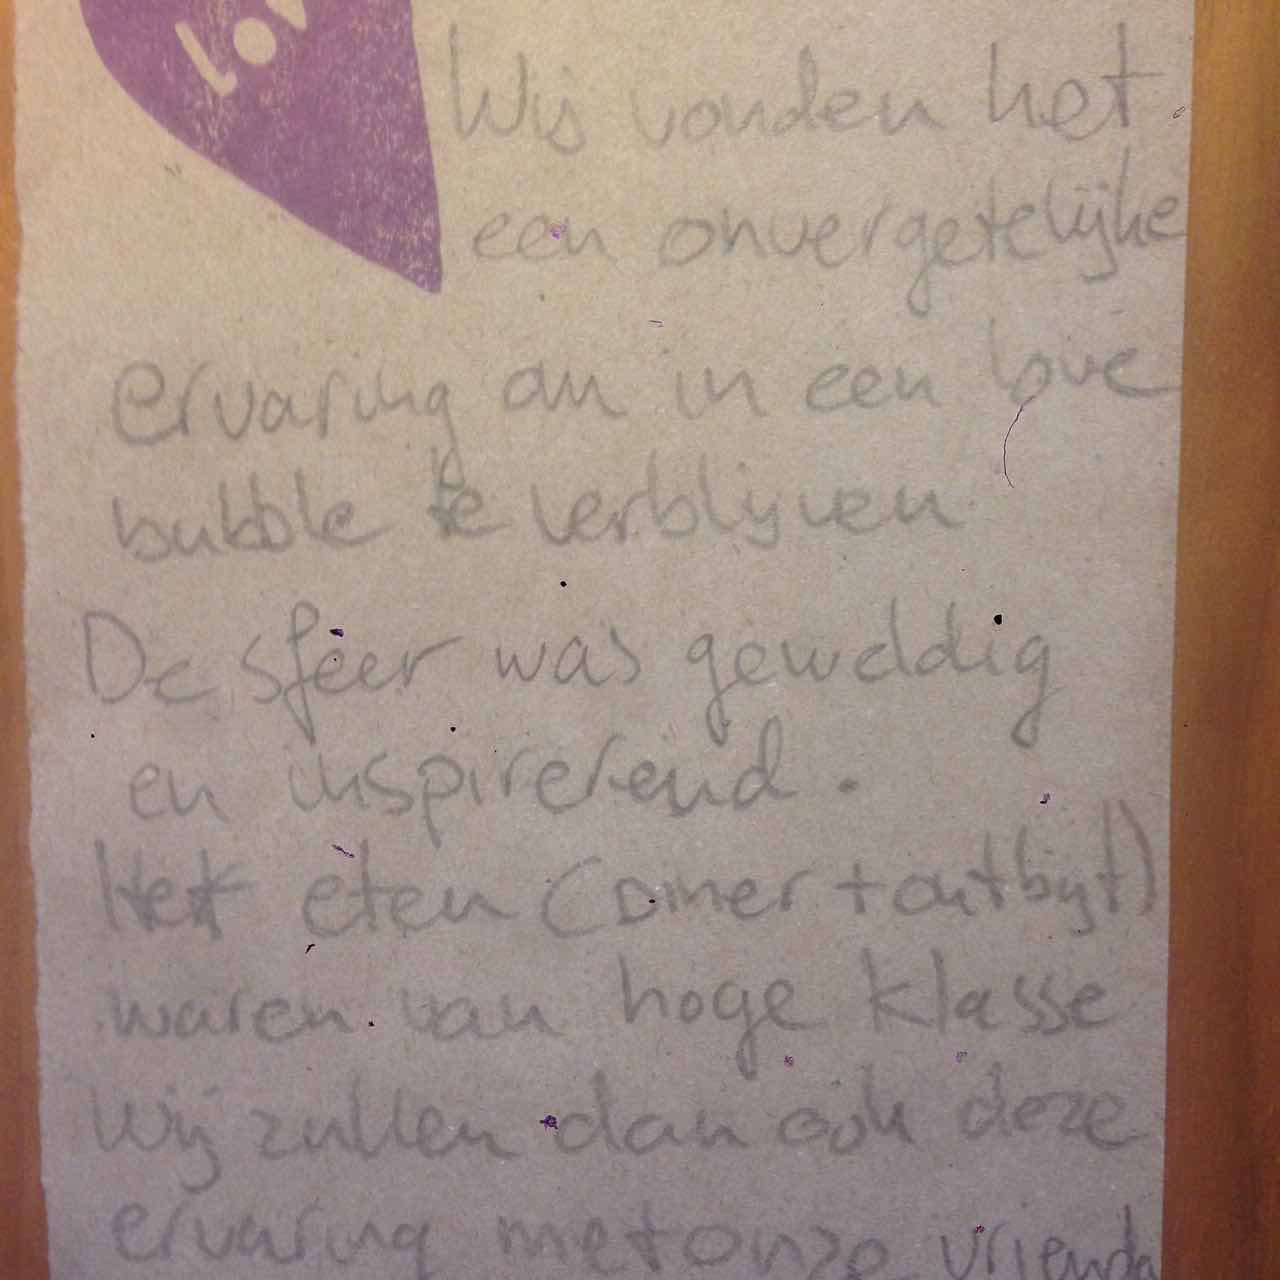 lov
Wij vonden het
een onvergetelijke
ervaring om in een love
bubble te verblijven
De sfeer was geweldig
en inspirerend.
Het eten (Diner + ontbijt)
waren van hoge klasse
Wij zullen dan ook deze
ervaring met onze vriende